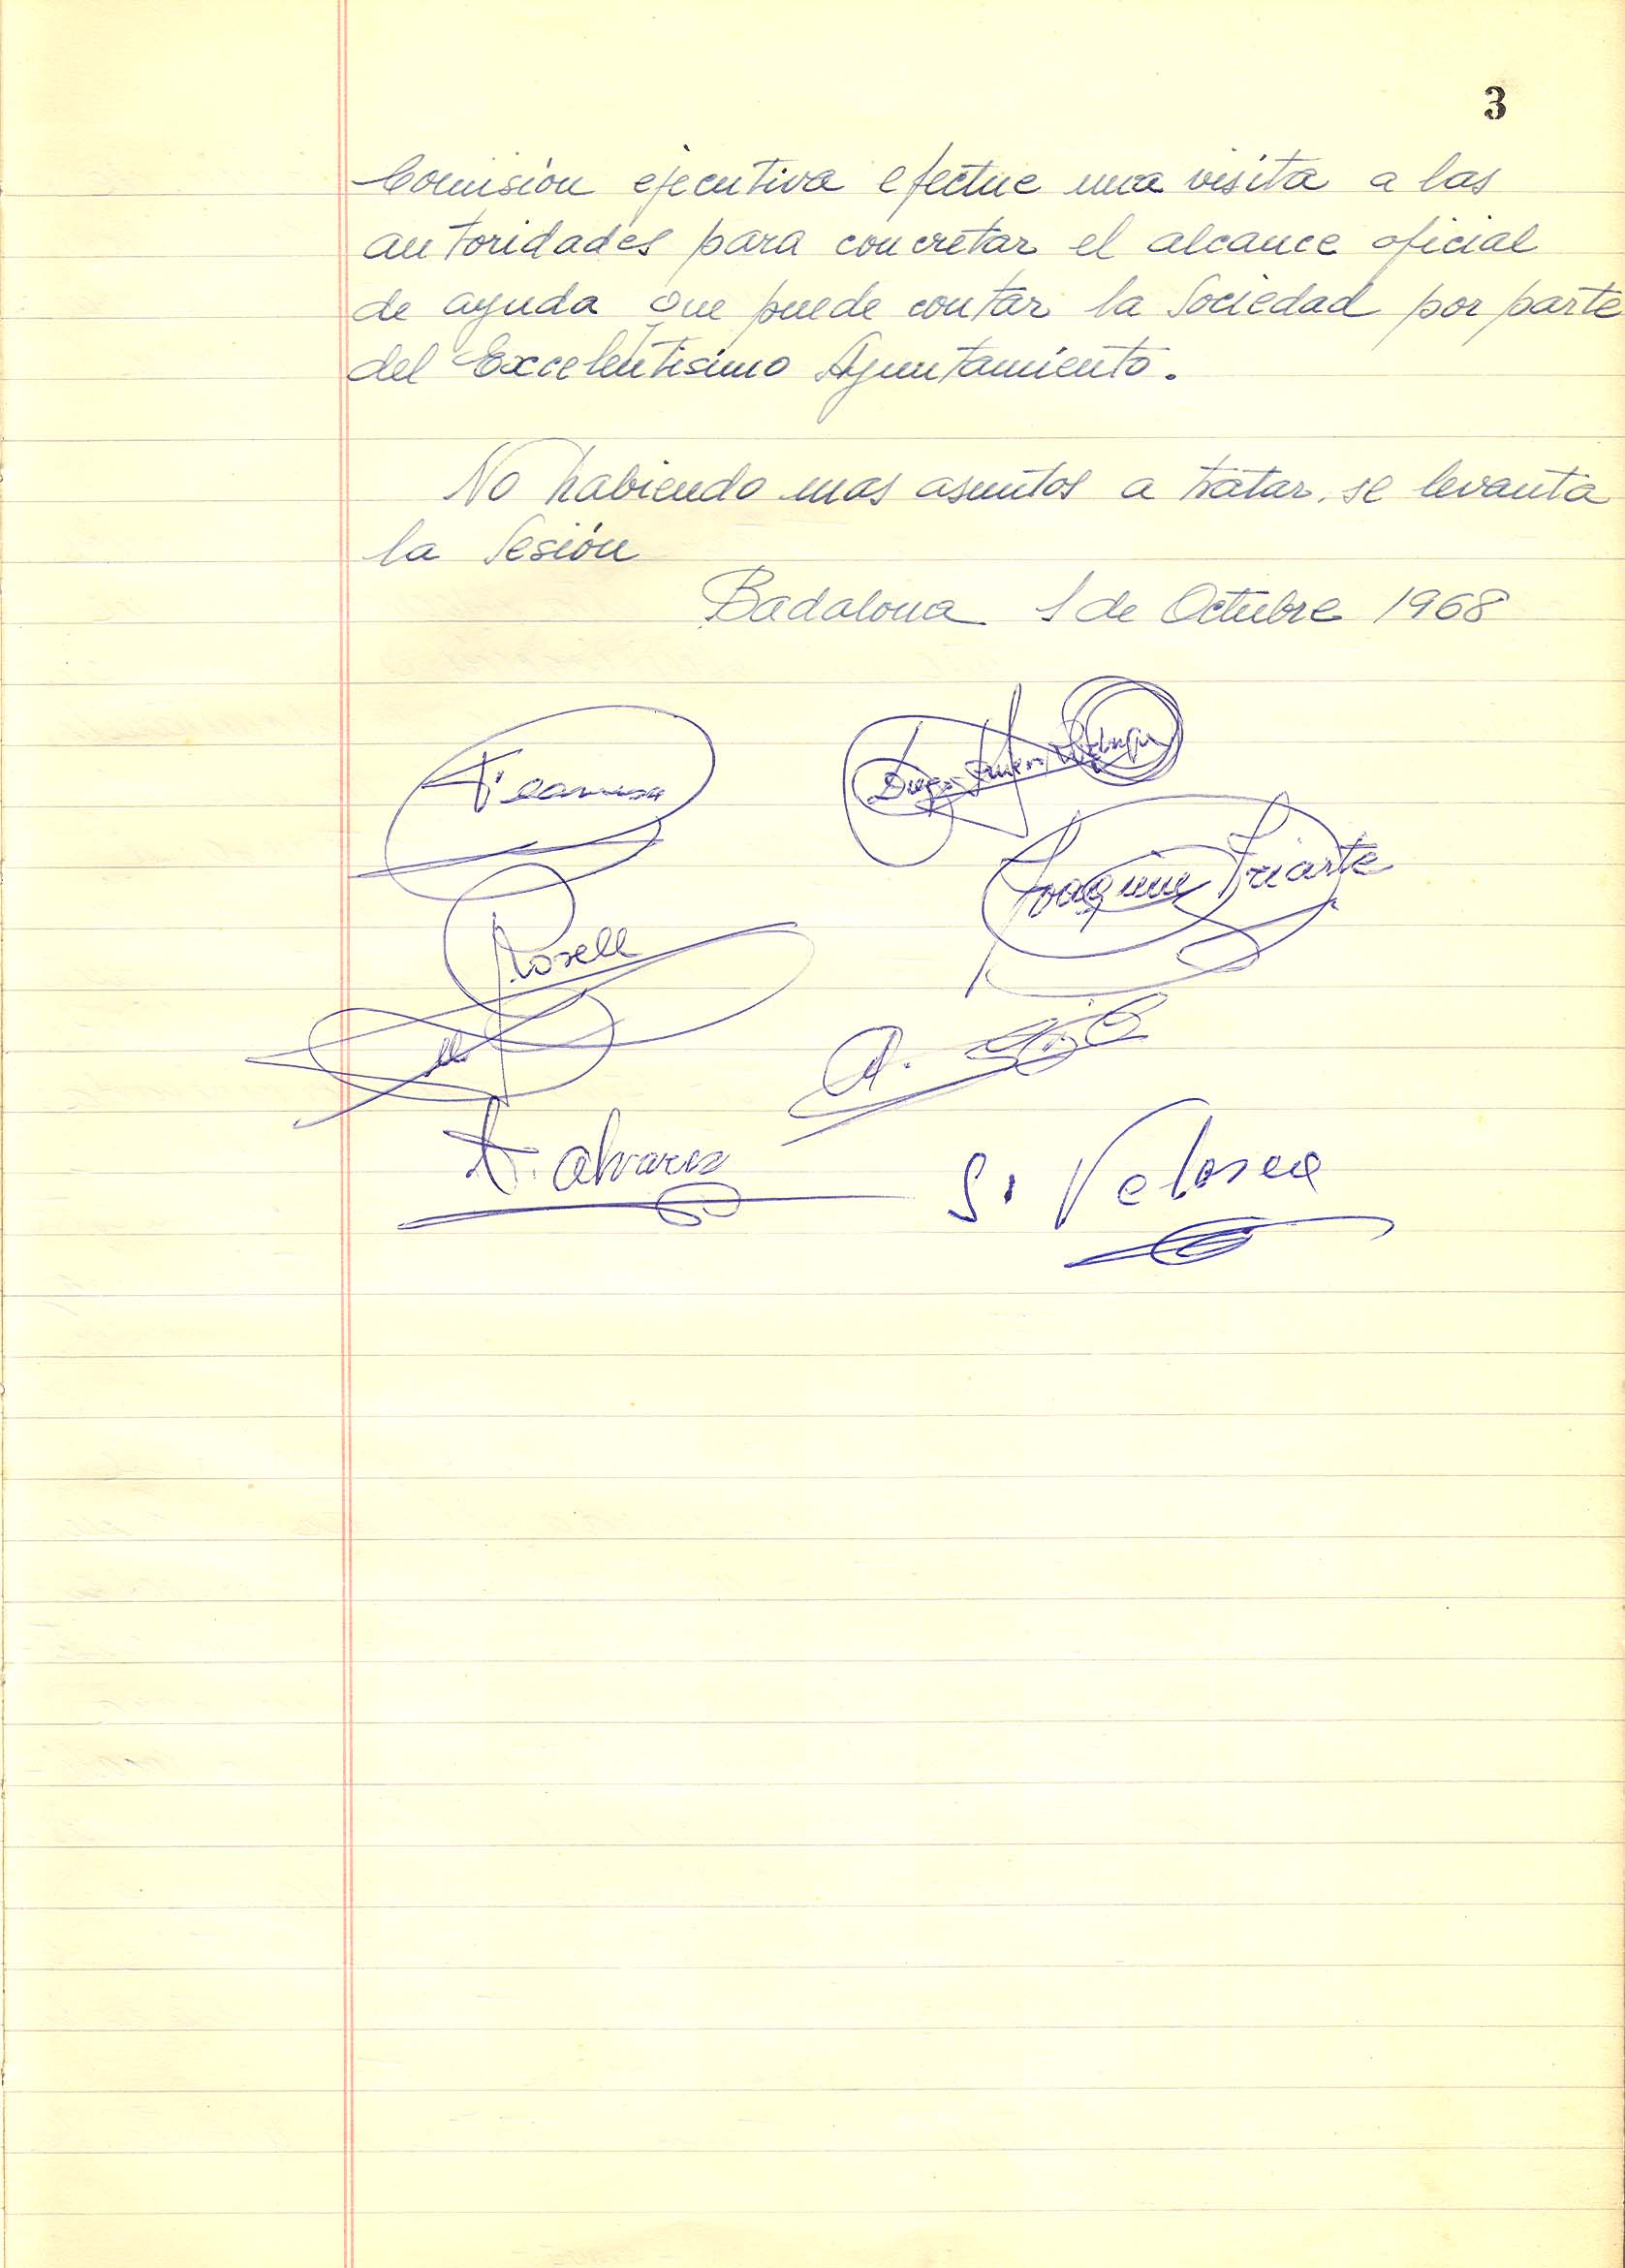 3
Comisión ejecutiva efectue una visita a las
autoridades para concretar el alcance oficial
de ayuda que puede contar la Sociedad por parte
del Excelentisimo Ayuntamiento.
No habiendo mas asuntos a tratar, se levanta
la Sesión
Badalona 1 de Octubre 1968
Diego
Joaquin Iriarte
Rosell
A.
A. Alvarez
S. Velasco